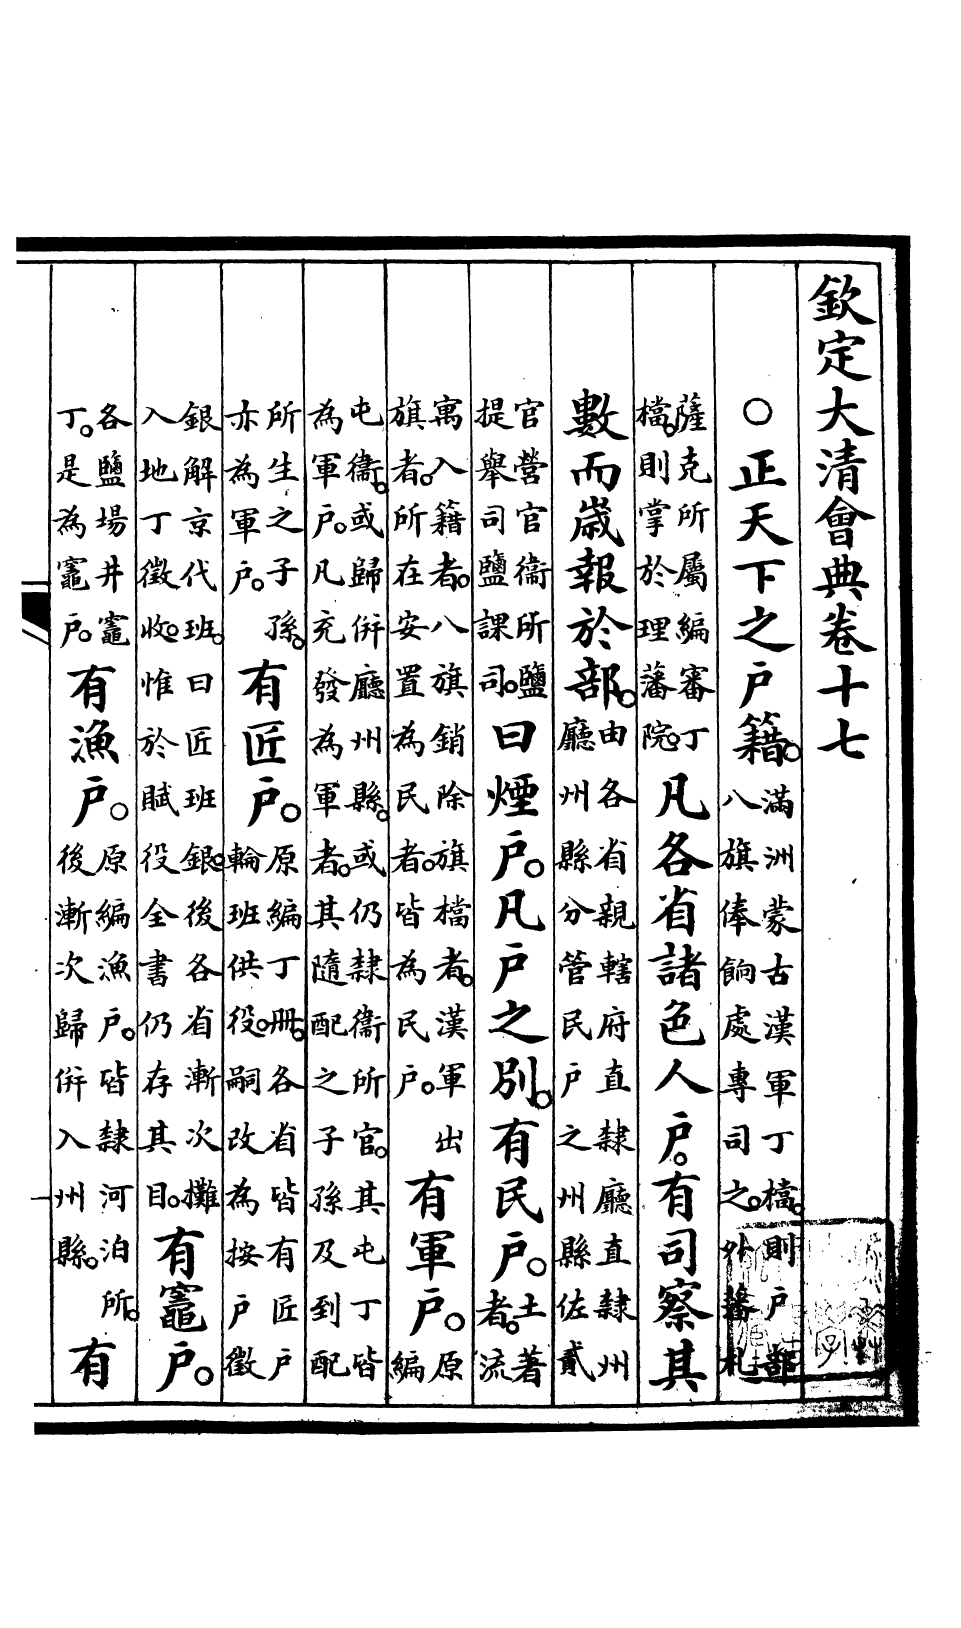 欽定大清會典卷十七
○正天下之戶籍。滿洲蒙古漢軍丁檔。則戶部八旗俸餉處專司之。外藩札
薩克所屬編審丁檔。則掌於理藩院。凡各省諸色人戶。有司察其
數而歲報於部。由各省親轄府直隸廳直隸州廳州縣分管民戶之州縣佐貳
官營官衞所鹽提舉司鹽課司。曰煙戶。凡戶之別。有民戶。土著者。流
寓入籍者。八旗銷除旗檔者。漢軍出旗者。所在安置為民者。皆為民戶。有軍戶。原編
屯衞。或歸併廳州縣。或仍隸衞所官。其屯丁皆為軍戶。凡充發為軍者。其隨配之子孫及到配
所生之子孫。亦為軍戶。有匠戶。原編丁冊。各省皆有匠戶輪班供役。嗣改為按戶徵
銀解京代班。曰匠班銀。後各省漸次攤入地丁徵收。惟於賦役全書仍存其目。有竈戶。
各鹽場井竈丁。是為竈戶。有漁戶。原編漁戶。皆隸河泊所。後漸次歸併入州縣。有